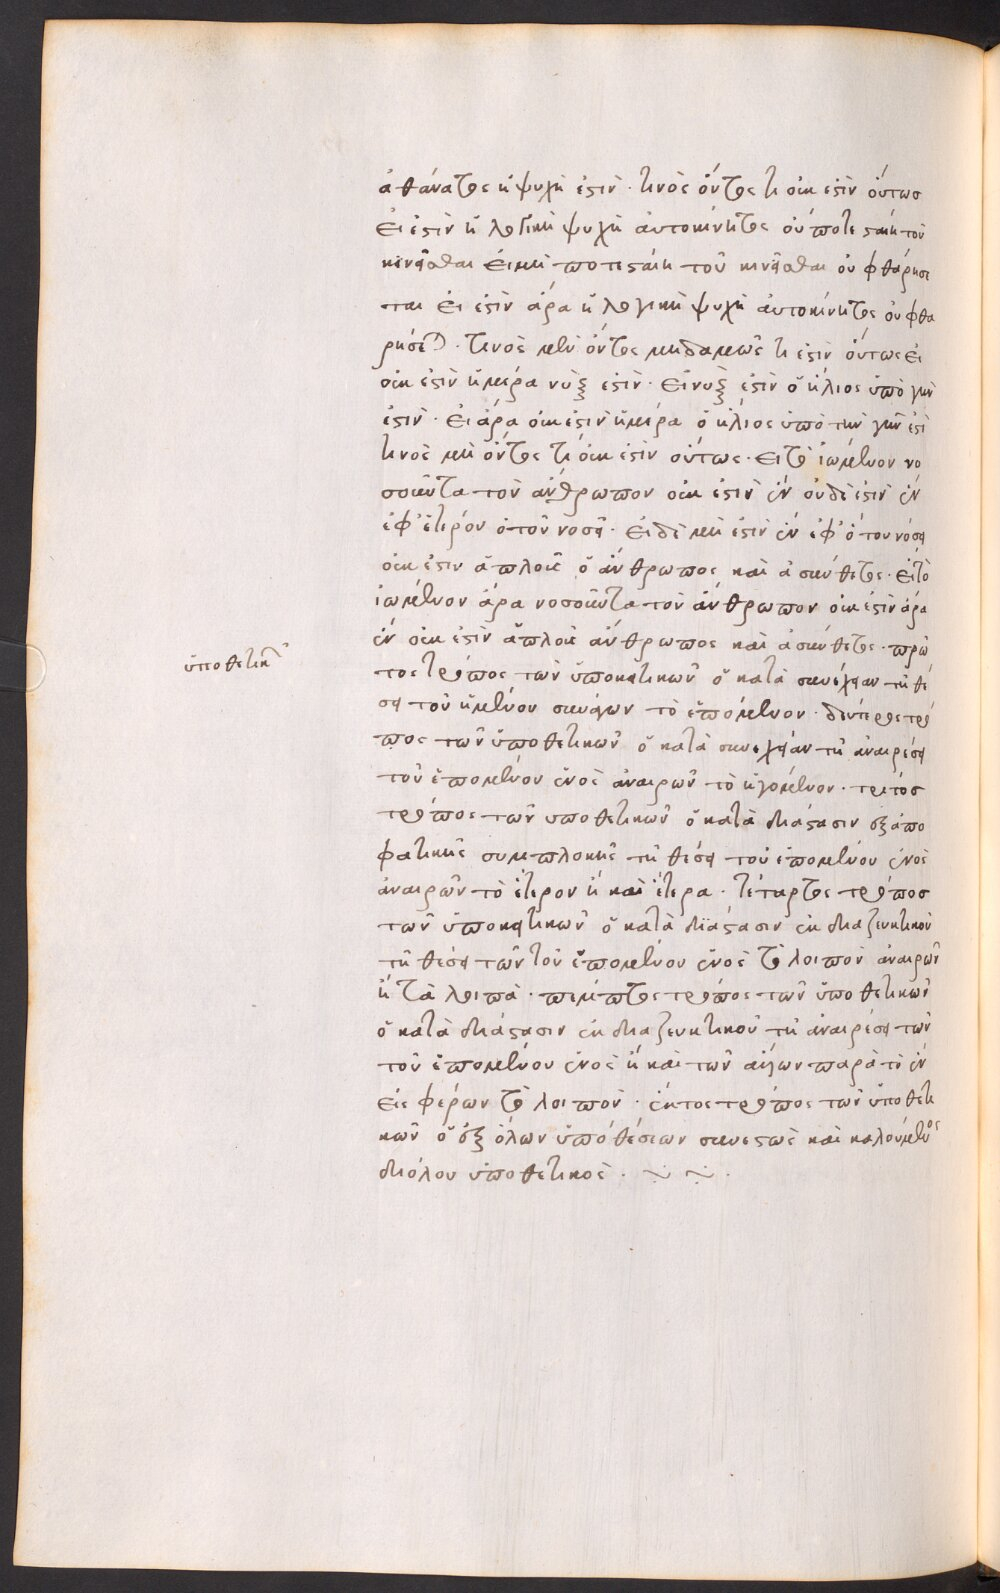 ἀθάνατος ἡ ψυχὴ ἐστὶν · τινὸς ὄντος τί οὐκ ἐστὶν οὕτως
εἰ ἐστὶν ἡ λογικὴ ψυχὴ ἀυτοκίνητος οὔποτε παύη τοῦ
κινεῖσθαι εἰ μὴ ποτε παύη τοῦ κινεῖσθαι οὐ φθαρήσε
ται εἰ ἐστὶν ἄρα ἡ λογικὴ ψυχὴ ἀυτοκίνητος οὐ φθα
ρήσεται · τινὸς μὲν ὄντος μηδαμῶς τί ἐστὶν οὕτως εἰ
οὐκ ἐστὶν ἡμέρα νὺξ ἐστὶν · εἰ νυξ ἐστὶν ὁ ἥλιος ὑπὸ γῆν
ἐστὶν · εἰ ἄρα οὐκ ἐστὶν ἡμέρα ὁ ἥλιος ὑπὸ τὴν γῆν ἐστὶ
τινὸς μὴ ὄντος τί οὐκ ἐστὶν οὕτως · εἰ τὸ ἰώμενον νο
σοῦντα τὸν ἄνθρωπον οὐκ ἐστὶν ἓν οὐδὲ ἐστὶν ἓν
ἐφ' ἕτερον ὁτοῦ νοσεῖ · εἰ δὲ μὴ ἐστὶν ἓν ἐφ' ὁτου νόσει
οὐκ ἐστιν ἁπλοῦς ὁ ἄνθρωπος καὶ ἀσύνθετος · εἰ τὸ
ἰώμενον ἄρα νοσοῦντα τὸν ἄνθρωπον οὐκ ἐστὶν ἄρα
ἓν οὐκ ἐστὶν ἁπλοῦς ἄνθρωπος καὶ ἀσύνθετος · πρῶ
ὑποθετικ
τος τρόπος τῶν ὑποκειτικῶν ὁ κατὰ συνέχειαν τῆ θέ
σει τοῦ ἡμένου συνάγων τὸ ἑπόμενον · δεύτερος τρό
πος τῶν ὑποθετικῶν ὁ κατὰ συνεχείαν τῆ ἀναιρέσει
τοῦ ἑπομένου ἑνὸς ἀναιρῶν τὸ ἡγούμενον · τρίτος
τρόπος τῶν ὑποθετικῶν ὁ κατὰ διάστασιν ἐξ ἀπο
φατικῆς συμπλοκῆς τῆ θέσει τοῦ ἑπομένου ἑνὸς
ἀναιρῶν τὸ ἕτερον ἢ καὶ ἕτερα · τέταρτος τρόπος
τῶν ὑποκειτικῶν ὁ κατὰ διάστασιν ἐκ διαζευκτικοῦ
τῆ θέσει τῶν τοῦ ἑπομένου ἑνὸς τὸ λοιπὸν ἀναιρῶν
ἢ τὰ λοιπὰ · πέμπτος τρόπος τῶν ὑποθετικῶν
ὁ κατὰ διάστασιν ἐκ διαζευκτικοῦ τῆ ἀναιρέσει τῶν
τοῦ ἑπομένου ἑνὸς ἢ καὶ τῶν παρὰ τὸ ἓν
εἰσφέρων τὸ λοιπὸν · ἕκτος τρόπος τῶν ὑποθετι
κῶν ὁ ἐξ ὅλων ὑποθέσεων συνεστὼς καὶ καλούμενος
διόλου ὑποθετικὸς ·